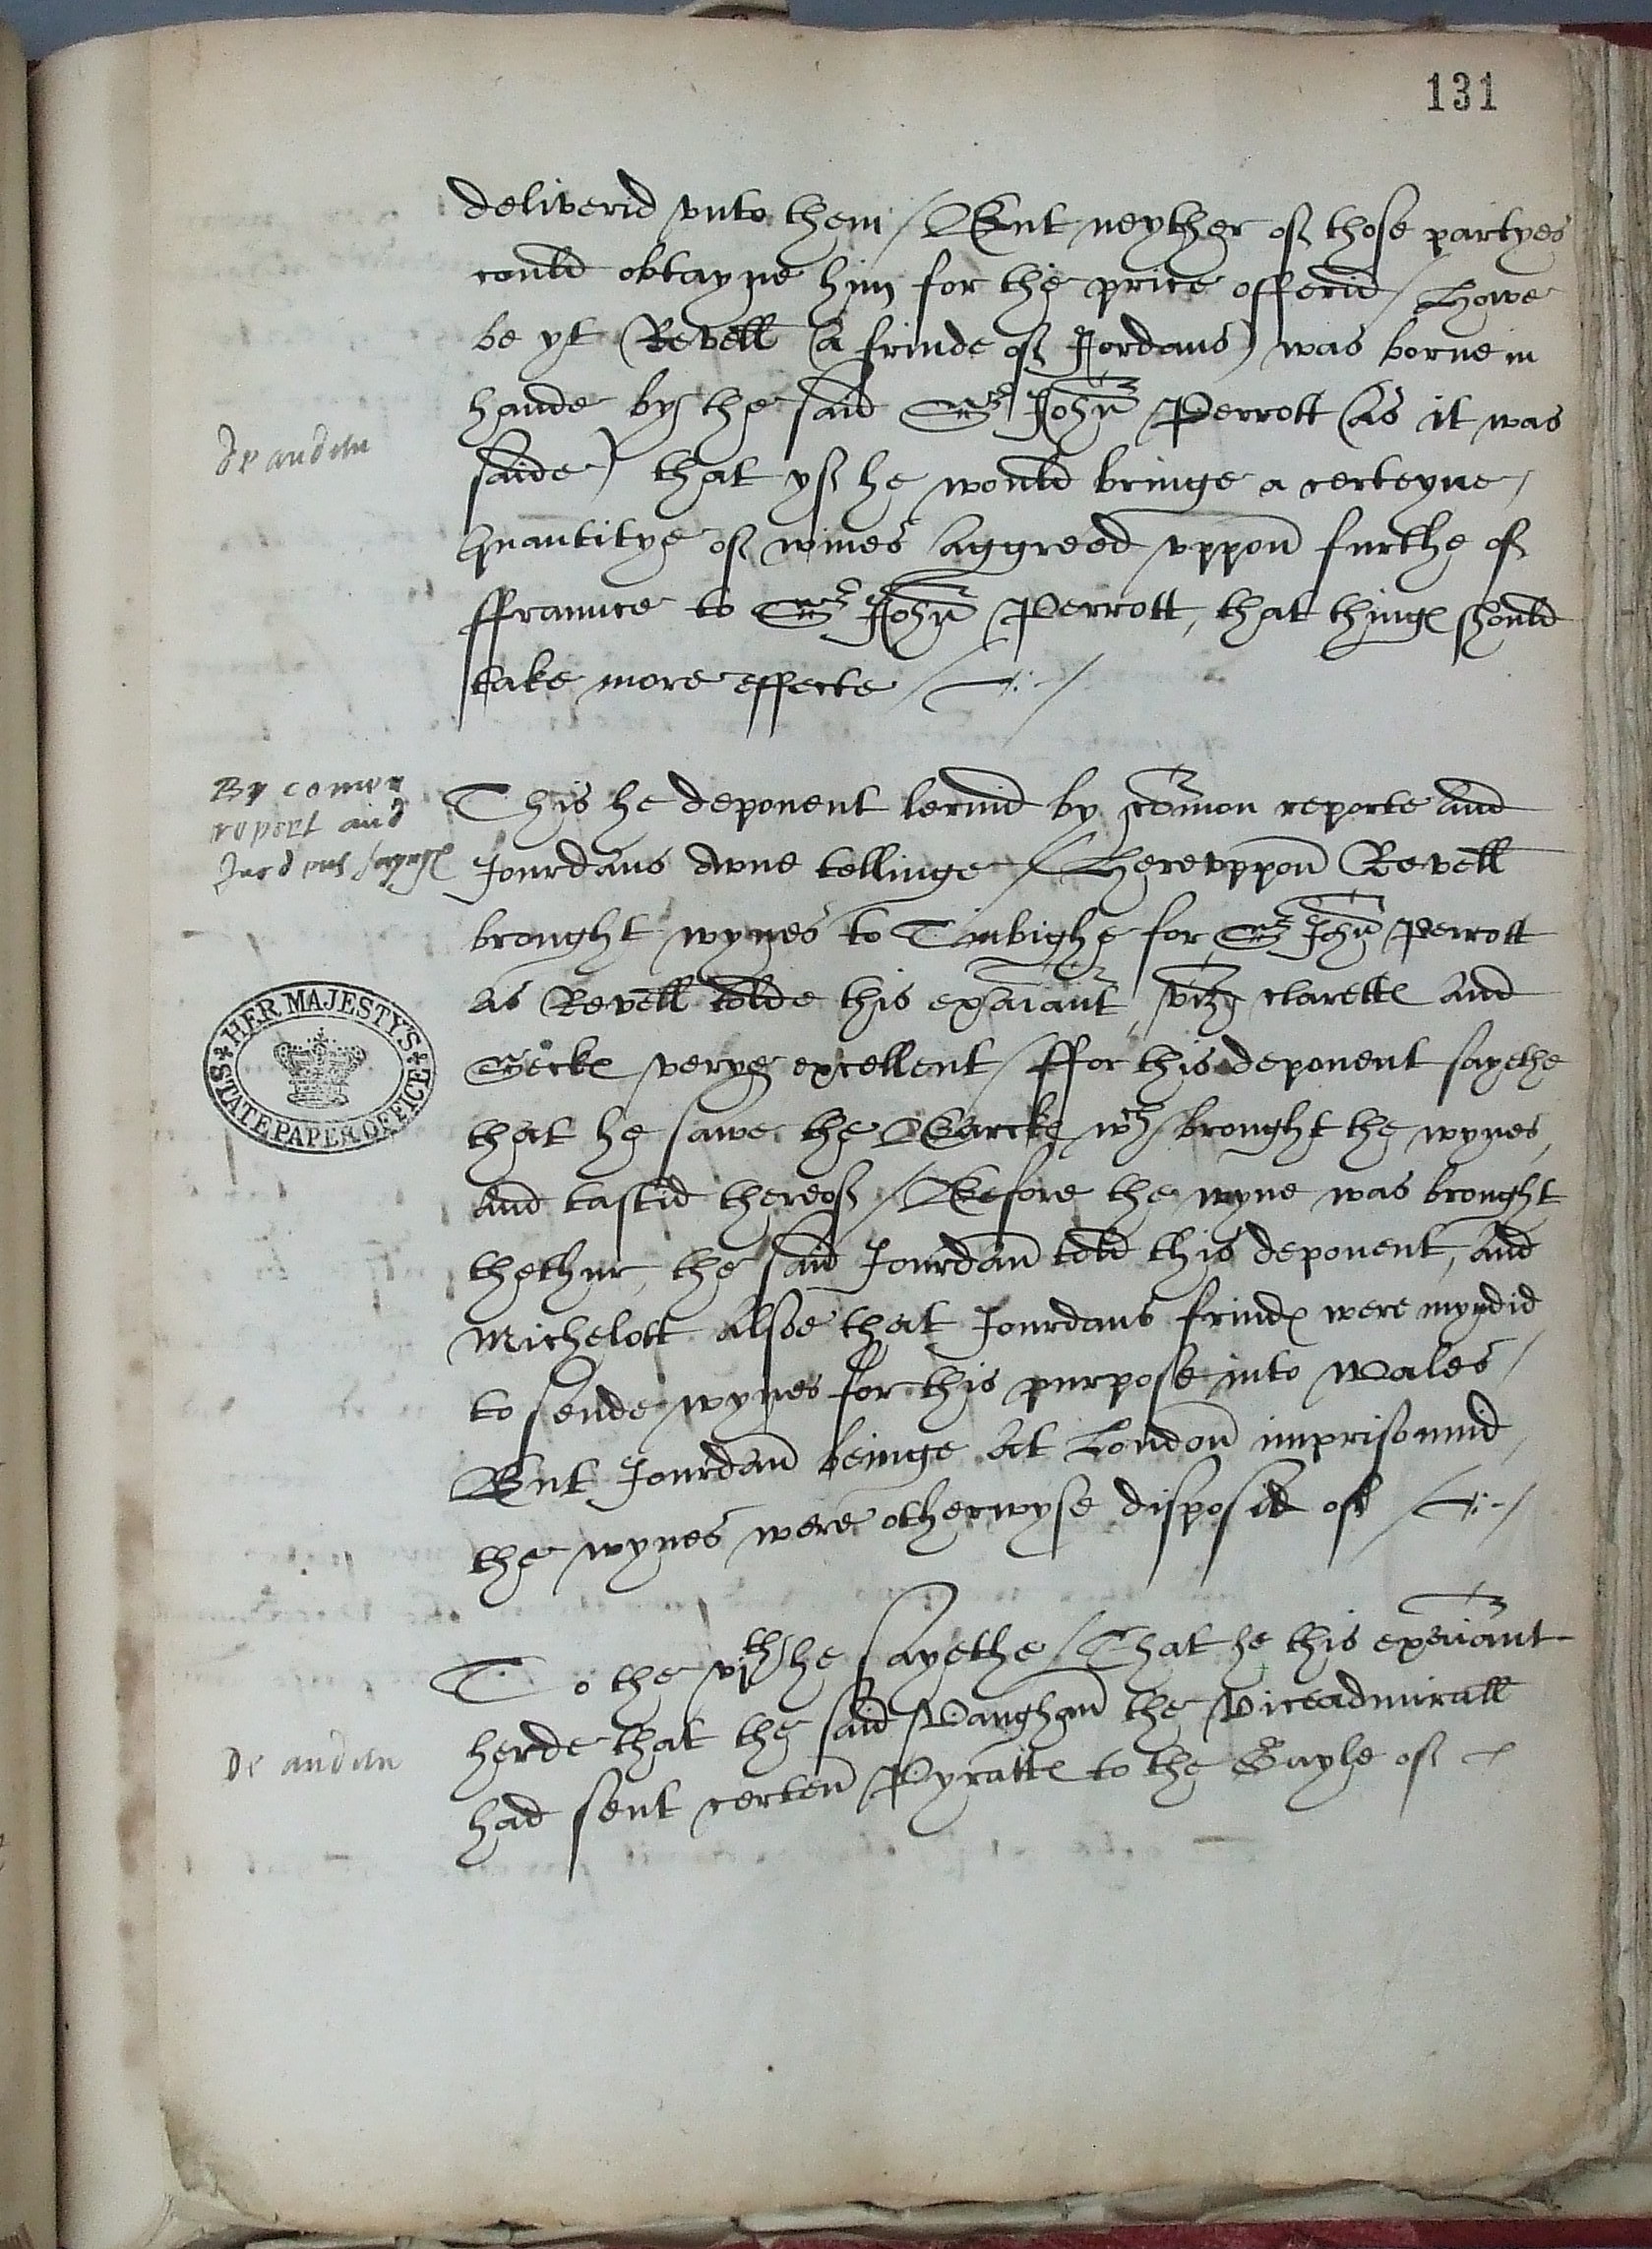 131
deliverid vnto them / But neyther of those partyes
could obtayne him for the price offerid / Howe
be yt Revell (a frinde of Jordans) was borne in
hande by the said Sr John Perrott (as it was
De auditu
saide) that yf he would bringe a certeyne
quantitye of wines aggreed vppon furthe of
ffraunce to Sr John Perrott, that things should
take more effecte
By comon
report and
Jurdans sayngs
This he deponent lernid by comon reporte and
Jourdans owne tellinge / Herevppon Revell
brought wynes to Tinbighe for Sr John Perrott
as Revell tolde this examinant, viz clarette and
Secke verye excellent / ffor this deponent sayethe
HER MAJESTY'S
STATE PAPER OFFICE
that he sawe the Barcke wch brought the wynes,
and tastid thereof / Before the wyne was brought
thethur, the said Jourdan told this deponent, and
Michelott alsoe that Jourdans frinds were myndid
to sende wynes for this purpose into Wales /
But Jourdan beinge at London imprisonnid
the wynes were otherwyse disposid of
To the vjth he sayethe / That he this examinant
herde that the said Vaughan the Viceadmirall
De auditu
had sent certen Pyratts to the Gayle of